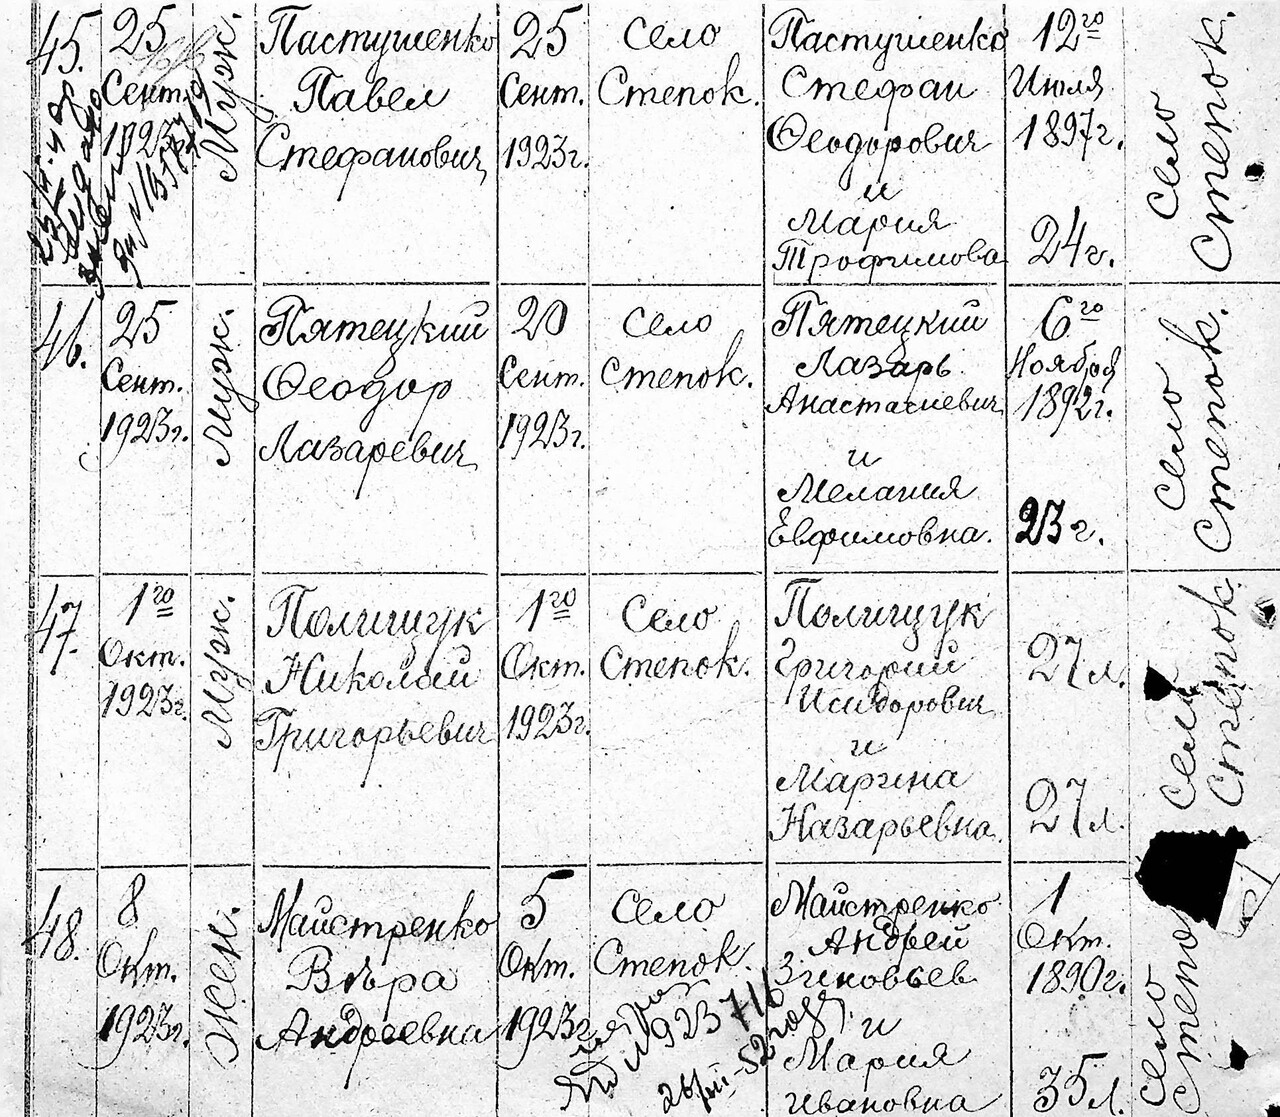 45.
25
Сент.
1923г.
Муж.
Пастушенко
Павел
Стефанович
25
Сент.
1923г.
Село
Степок.
Пастушенко
Стефан
Ѳеодорович
и
Мария
Трофимова
12го
Июля
1897г.
24г.
Село
Степок.
46.
25
Сент.
1923г.
Муж.
Пятецкий
Ѳеодор
Лазаревич
20
Сент.
1923г.
Село
Степок.
Пятецкий
Лазарь
Анастасиевич
и
Мелания
Евфимовна.
6го
Ноября
1892г.
23г.
Село
Степок.
47.
1го
Окт.
1923г.
Муж.
Полищук
Николай
Григорьевич
1го
Окт.
1923г.
Село
Степок.
Полищук
Григорий
Исидорович
и
Марина
Назарьевна
27л.
27л.
Село
Степок
48.
8
Окт.
1923г.
Жен.
Майстренко
Вѣра
Андреевна
5
Окт.
1923г.
Село
Степок.
Майстренко
Андрей
Зиновьев
и
Мария
Ивановна
1
Окт.
1890г.
35л.
Село
Степо